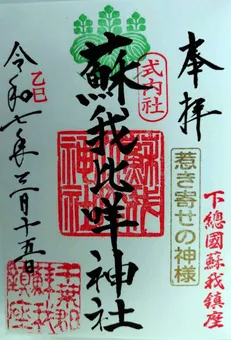 奉拝
下總國蘇我鎮座
惹き寄せの神様
式内社
蘇我比咩神社
蘇我比咩神社
乙巳
令和七年三月十五日